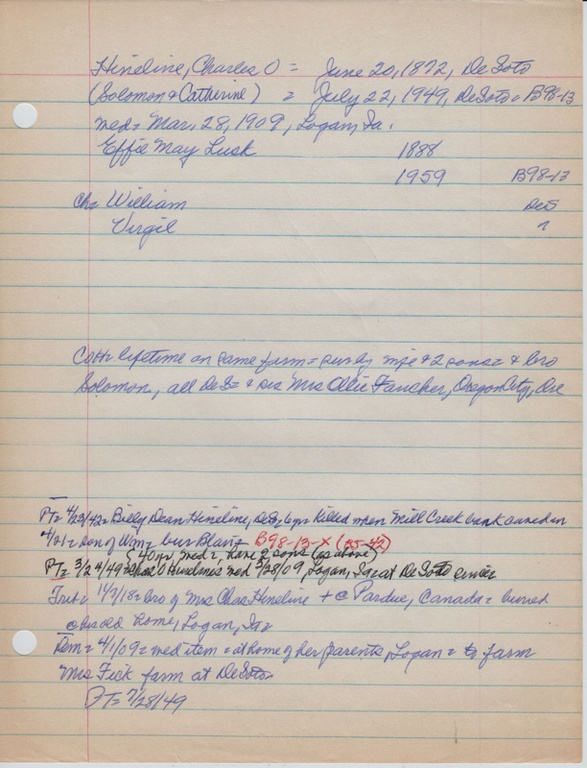 Hineline, Charles O = June 20, 1872, DeSoto
(Solomon & Catherine) = July 22, 1949, DeSoto = B98-13
med = Mar. 28, 1909, Logan, Ia.
Effie May Lusk 1888
1959 B98-13
ch = William DeS
Virgil ?
lifetime on same farm = surv by wife & 2 sons = & bro
Solomon, all DeS = & sis Mrs Ollie Fancher, Oregon City, Ore
PT = 4/23/42 = Billy Dean Hineline, DeS, 6 yr = killed when Mill Creek bank caved in
4/21 = son of Wm = bur Blair = B98-13-X (35-42)
40 yr med =, have 2 sons (as above)
PT = 3/24/49 = Chas O Hineline's med 3/28/09, Logan, Ia = at DeSoto since
Trib = 11/7/18 = bro of Mrs Chas Hineline + c Pardue, Canada = buried
c old home, Logan, Ia =
Dem = 4/1/09 = med item = at home of her parents, Logan = to farm
Mrs Fick farm at DeSoto
PT = 7/28/49